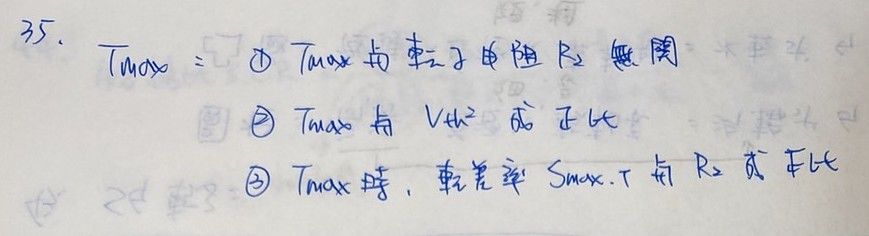 35.
Tmax : ① Tmax 与 転子 电阻 R₂ 無関
② Tmax 与 Vth² 成 正比
③ Tmax時, 転差率 Smax.T 与 R₂ 成 正比